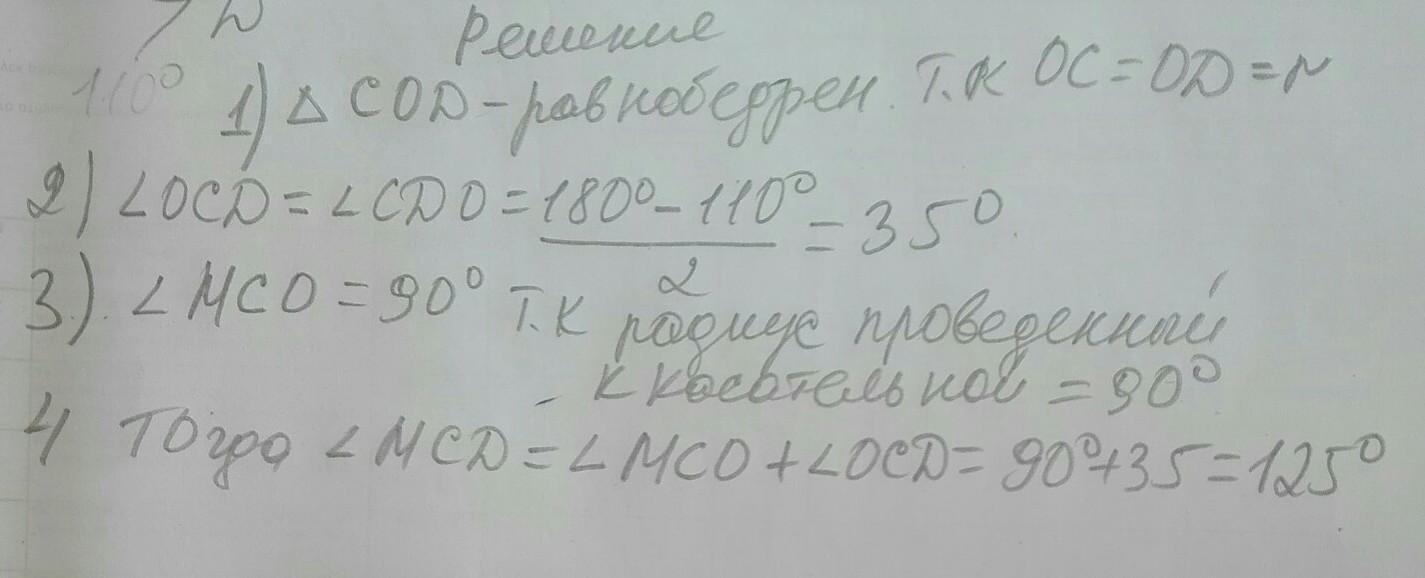 Решение
110°
1) △ COD - равнобедрен. т.к OC = OD = r
2) ∠OCD = ∠CDO = 180° - 110° / 2 = 35°.
3.) ∠MCO = 90° т.к радиус проведенный
к касательной = 90°
4 Тогда ∠MCD = ∠MCO + ∠OCD = 90° + 35 = 125°